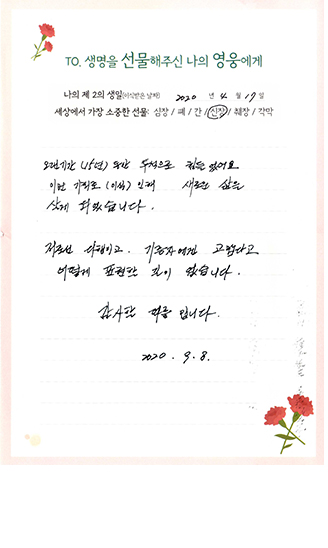 TO. 생명을 선물해주신 나의 영웅에게
나의 제 2의 생일(이식받은 날짜) 2020 년 4 월 17 일
세상에서 가장 소중한 선물: 심장 / 폐 / 간 / 신장 / 췌장 / 각막
오랜기간 (15년) 투석으로 힘들었어요
이번 기회로 (이식) 인해 새로운 삶을
살게 되었습니다.
저로선 다행이고. 기증자에겐 고맙다고
어떻게 표현할 길이 없습니다.
감사할 따름 입니다.
2020. 9. 8.